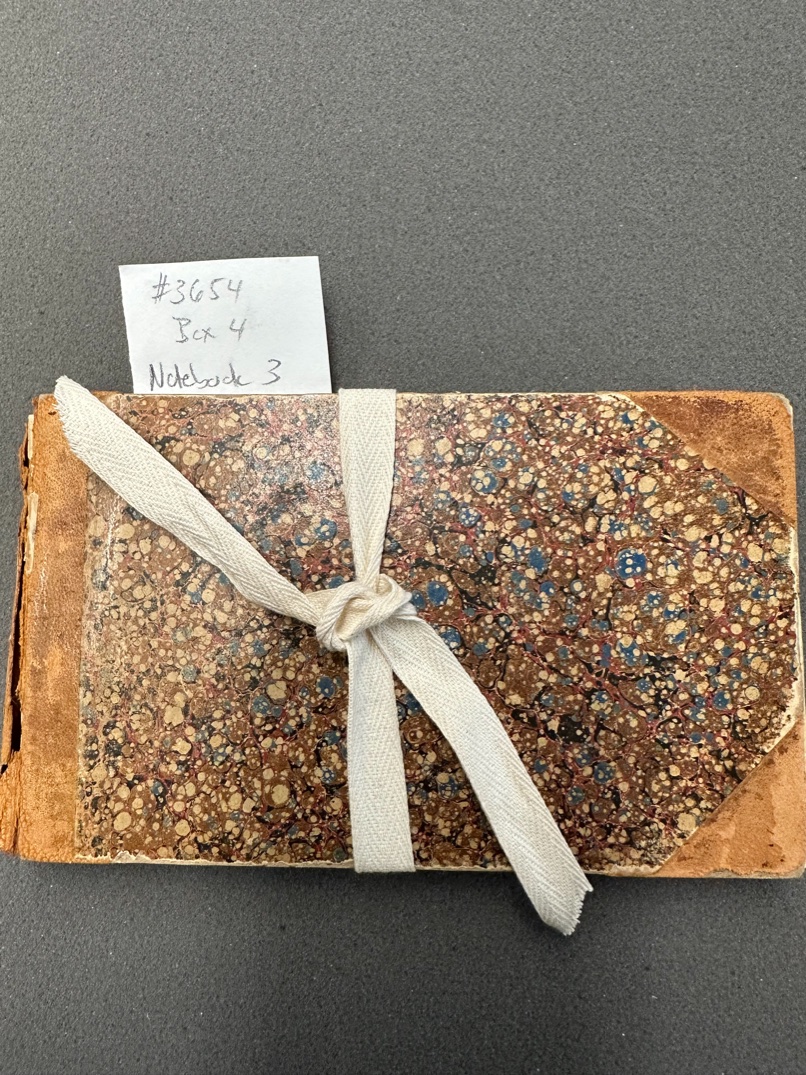 #3654
Box 4
Notebook 3